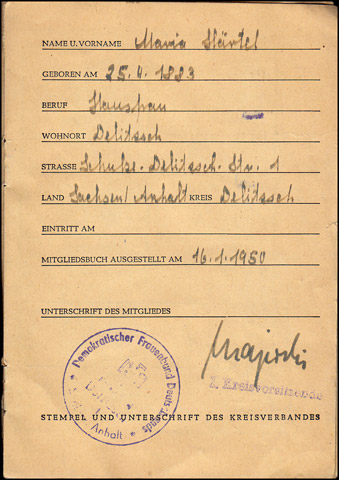 NAME U. VORNAME Maria Härtel
GEBOREN AM 25.4.1883
BERUF Hausfrau
WOHNORT Delitzsch
STRASSE Schulze-Delitzsch-Str. 1
LAND Sachsen/Anhalt KREIS Delitzsch
EINTRITT AM
MITGLIEDSBUCH AUSGESTELLT AM 16.1.1950
UNTERSCHRIFT DES MITGLIEDES
Demokratischer Frauenbund Deutschlands
Anhalt
1. Kreisvorsitzende
STEMPEL UND UNTERSCHRIFT DES KREISVERBANDES